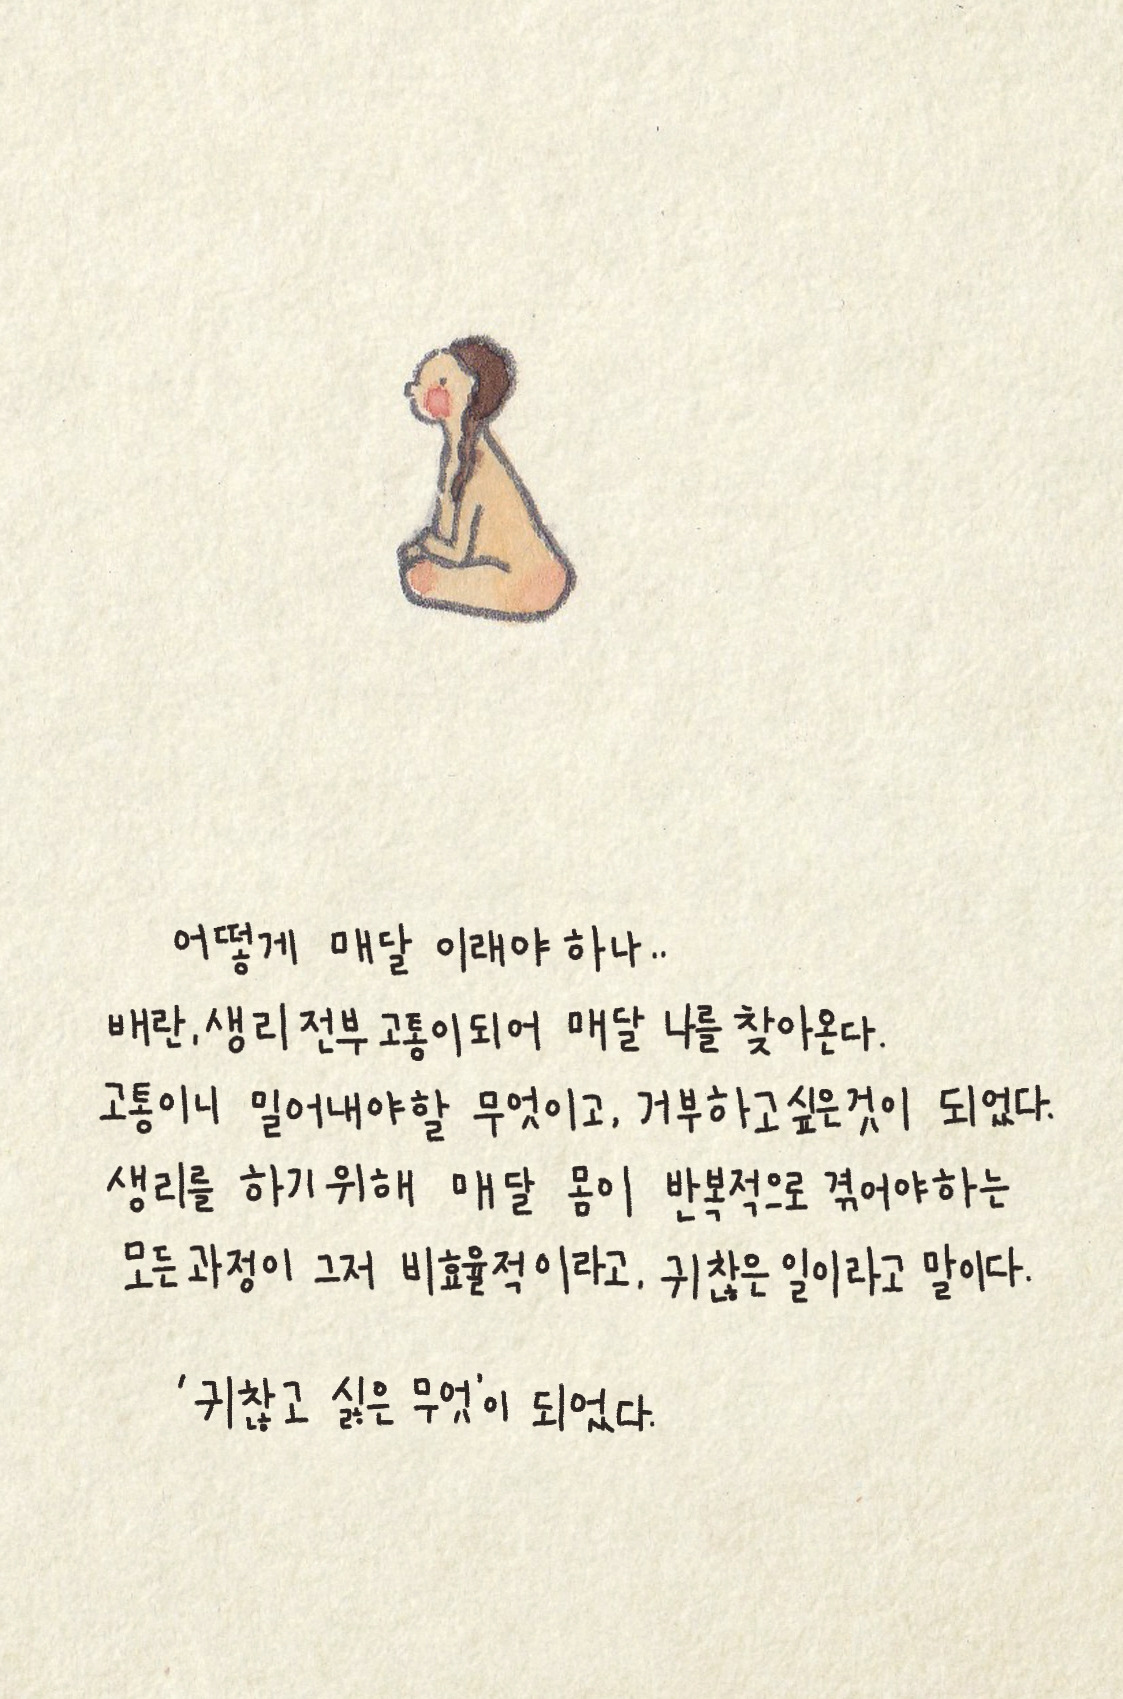 어떻게 매달 이래야 하나..
배란, 생리 전부 고통이되어 매달 나를 찾아온다.
고통이니 밀어내야할 무엇이고, 거부하고싶은것이 되었다.
생리를 하기위해 매달 몸이 반복적으로 겪어야하는
모든과정이 그저 비효율적이라고, 귀찮은 일이라고 말이다.
'귀찮고 싫은 무엇'이 되었다.